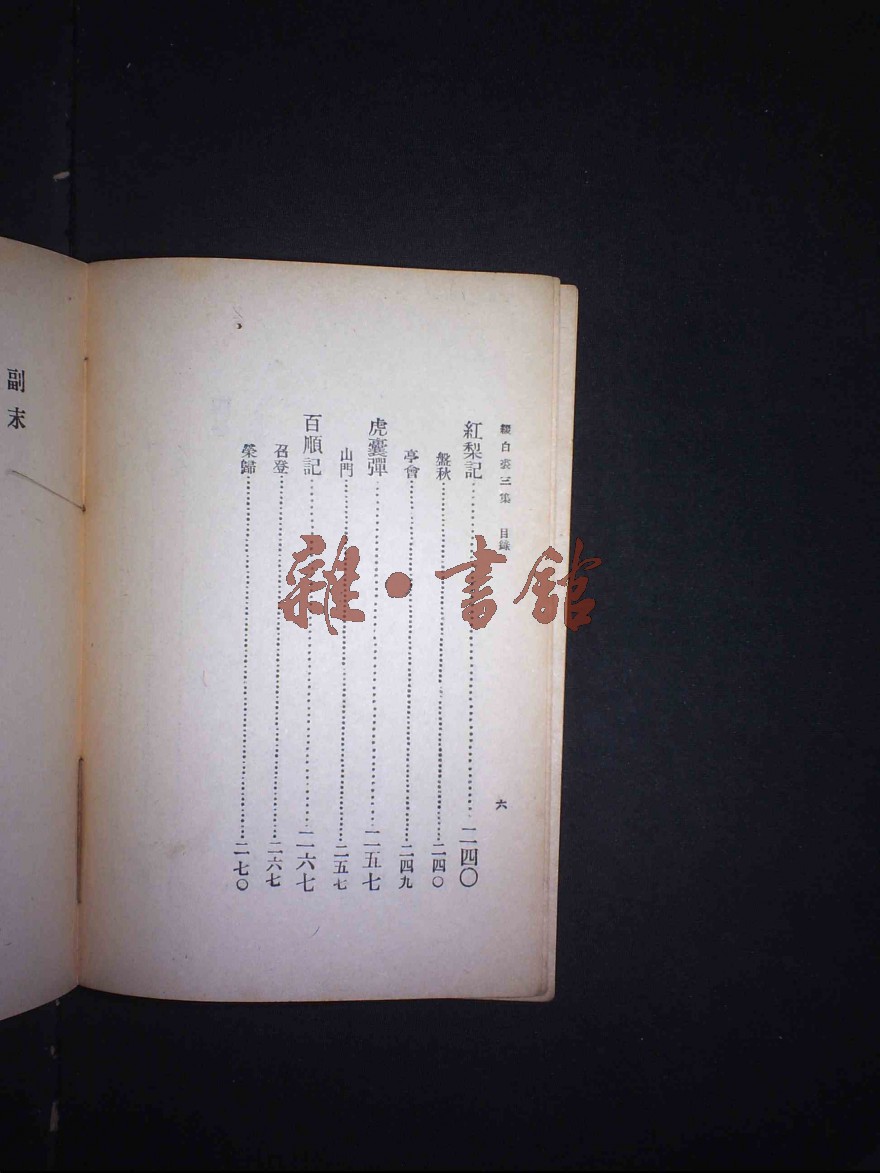 綴白裘三集 目錄 六
紅梨記 二四〇
盤秋 二四〇
亭會 二四九
虎囊彈 二五七
山門 二五七
百順記 二六七
召登 二六七
榮歸 二七〇
副末
雜•書館